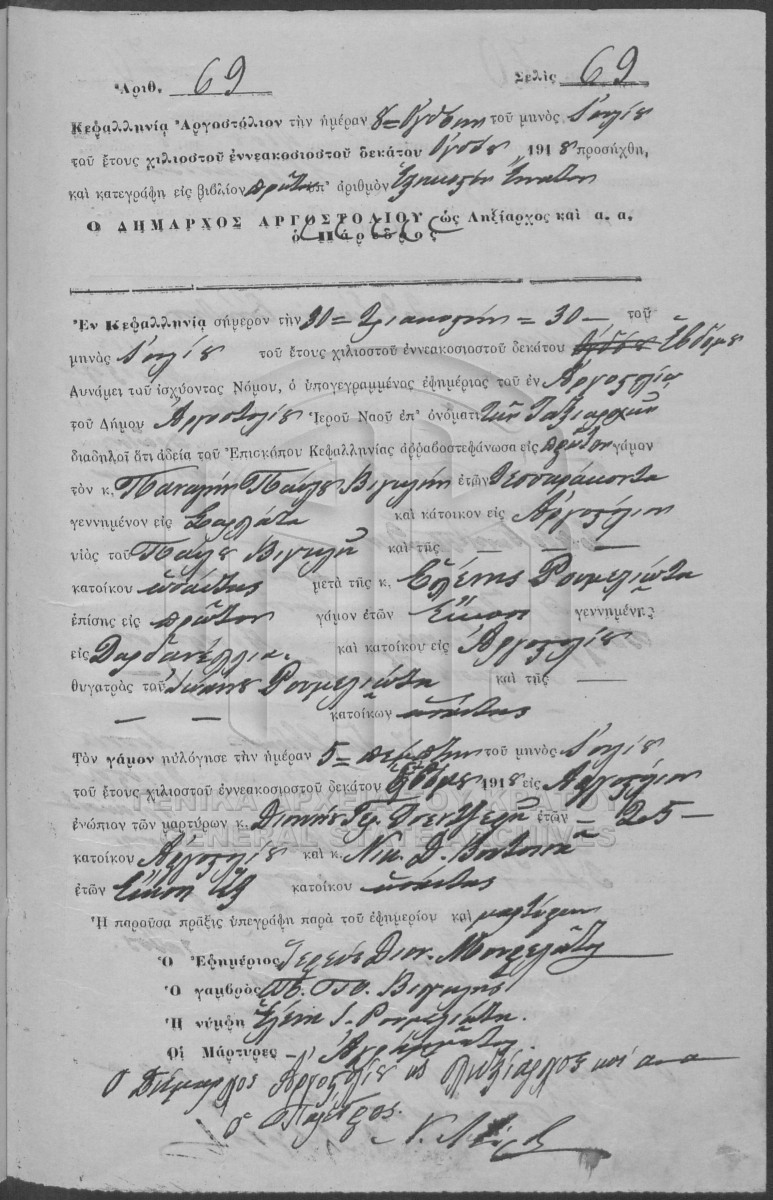 Ἀριθ. 69 Σελὶς 69
Κεφαλληνία Ἀργοστόλιον τὴν ἡμέραν 8= Ὀγδόην τοῦ μηνὸς
τοῦ ἔτους χιλιοστοῦ ἐννεακοσιοστοῦ δεκάτου Ὀγδόου 1918 προσήχθη,
καὶ κατεγράφη εἰς βιβλίον πρῶτον ὑπ' ἀριθμὸν Ἑξηκοστὸν Ἔνατον
Ο ΔΗΜΑΡΧΟΣ ΑΡΓΟΣΤΟΛΙΟΥ ὡς Ληξίαρχος καὶ α. α.
ὁ Πάρεδρος
Ἐν Κεφαλληνίᾳ σήμερον τὴν 30= Τριακοστὴν = 30 — τοῦ
μηνὸς τοῦ ἔτους χιλιοστοῦ ἐννεακοσιοστοῦ δεκάτου Ὀγδόου Ἑβδόμου
Δυνάμει τοῦ ἰσχύοντος Νόμου, ὁ ὑπογεγραμμένος ἐφημέριος τοῦ ἐν Ἀργοστολίῳ
τοῦ Δήμου Ἀργοστολίου Ἱεροῦ Ναοῦ ἐπ' ὀνόματι τῶν Ταξιαρχῶν
διαδηλοῖ ὅτι ἀδείᾳ τοῦ Ἐπισκόπου Κεφαλληνίας ἀῤῥαβοστεφάνωσα εἰς πρῶτον γάμον
τὸν κ. Παναγῆν Παύλου ἐτῶν Τεσσαράκοντα
γεννημένον εἰς Σαρλάτα καὶ κάτοικον εἰς Ἀργοστόλιον
υἱὸς τοῦ Παύλου καὶ τῆς — — —
κατοίκου ὡσαύτως μετὰ τῆς κ. Ἑλένης Ρουμελιώτη
ἐπίσης εἰς πρῶτον γάμον ἐτῶν Εἴκοσι γεννημένης
εἰς Δαρδανέλλια. καὶ κατοίκου εἰς Ἀργοστόλιον
θυγατρὸς τοῦ Ἰωάννου Ρουμελιώτη καὶ τῆς —
— — κατοίκων ὡσαύτως
Τὸν γάμον ηὐλόγησε τὴν ἡμέραν 5= πέμπτην τοῦ μηνὸς
τοῦ ἔτους χιλιοστοῦ ἐννεακοσιοστοῦ δεκάτου 1918 εἰς Ἀργοστόλιον
ἐνώπιον τῶν μαρτύρων κ. ἐτῶν — 25 —
κατοίκου Ἀργοστολίου καὶ κ. Νικ. Δ.
ἐτῶν Εἴκοσι 29 κατοίκου ὡσαύτως
Ἡ παροῦσα πρᾶξις ὑπεγράφη παρὰ τοῦ ἐφημερίου καὶ μαρτύρων
Ὁ Ἐφημέριος Ἱερεὺς Διον.
Ὁ γαμβρὸς
Ἡ νύμφη Ἑλένη Ι. Ρουμελιώτη.
Οἱ Μάρτυρες —
Ὁ Δήμαρχος Ἀργοστολίου ὡς Ληξίαρχος καὶ α α
ὁ Πάρεδρος.
ΓΕΝΙΚΑ ΑΡΧΕΙΑ ΤΟΥ ΚΡΑΤΟΥΣ
GENERAL STATE ARCHIVES